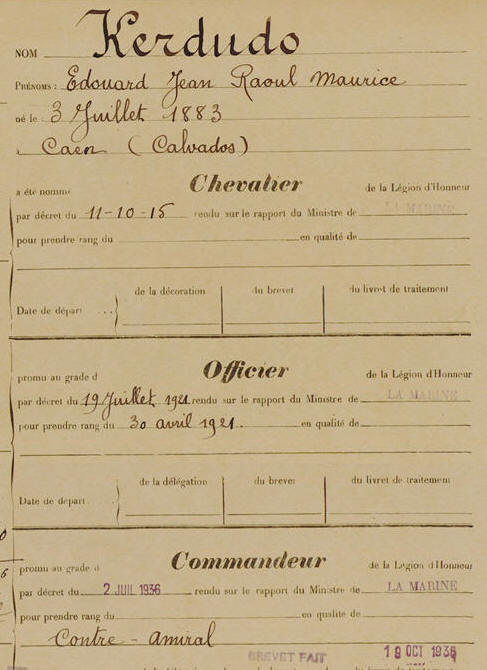 NOM Kerdudo
PRÉNOMS : Edouard Jean Raoul Maurice
né le 3 Juillet 1883
à Caen (Calvados)
a été nommé Chevalier de la Légion d'Honneur
par décret du 11-10-15 rendu sur le rapport du Ministre de LA MARINE
pour prendre rang du en qualité de
de la décoration du brevet du livret de traitement
Date de départ ...
promu au grade d Officier de la Légion d'Honneur
par décret du 19 Juillet 1921 rendu sur le rapport du Ministre de LA MARINE
pour prendre rang du 30 avril 1921. en qualité de
de la délégation du brevet du livret de traitement
Date de départ.
promu au grade d Commandeur de la Légion d'Honneur
par décret du 2 JUIL 1936 rendu sur le rapport du Ministre de LA MARINE
pour prendre rang du en qualité de
Contre-Amiral
BREVET FAIT 19 OCT 1936